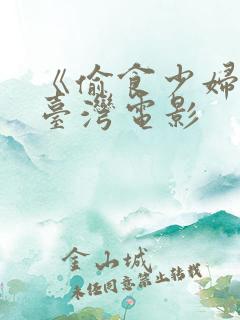 《偷食少婦
臺灣電影
金山城
未经同意禁止转载